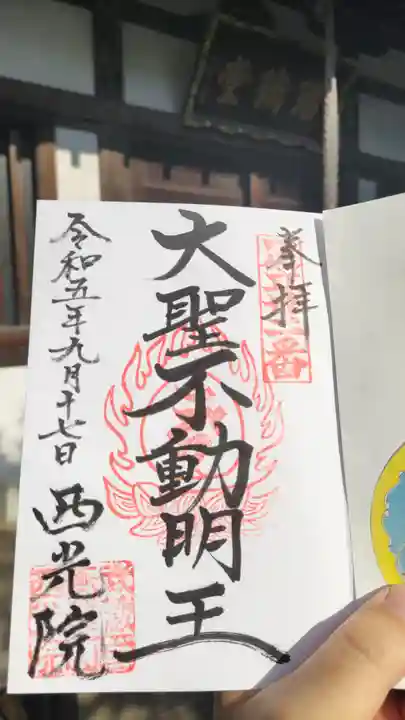 奉拝
大聖不動明王
令和五年九月十七日
西光院